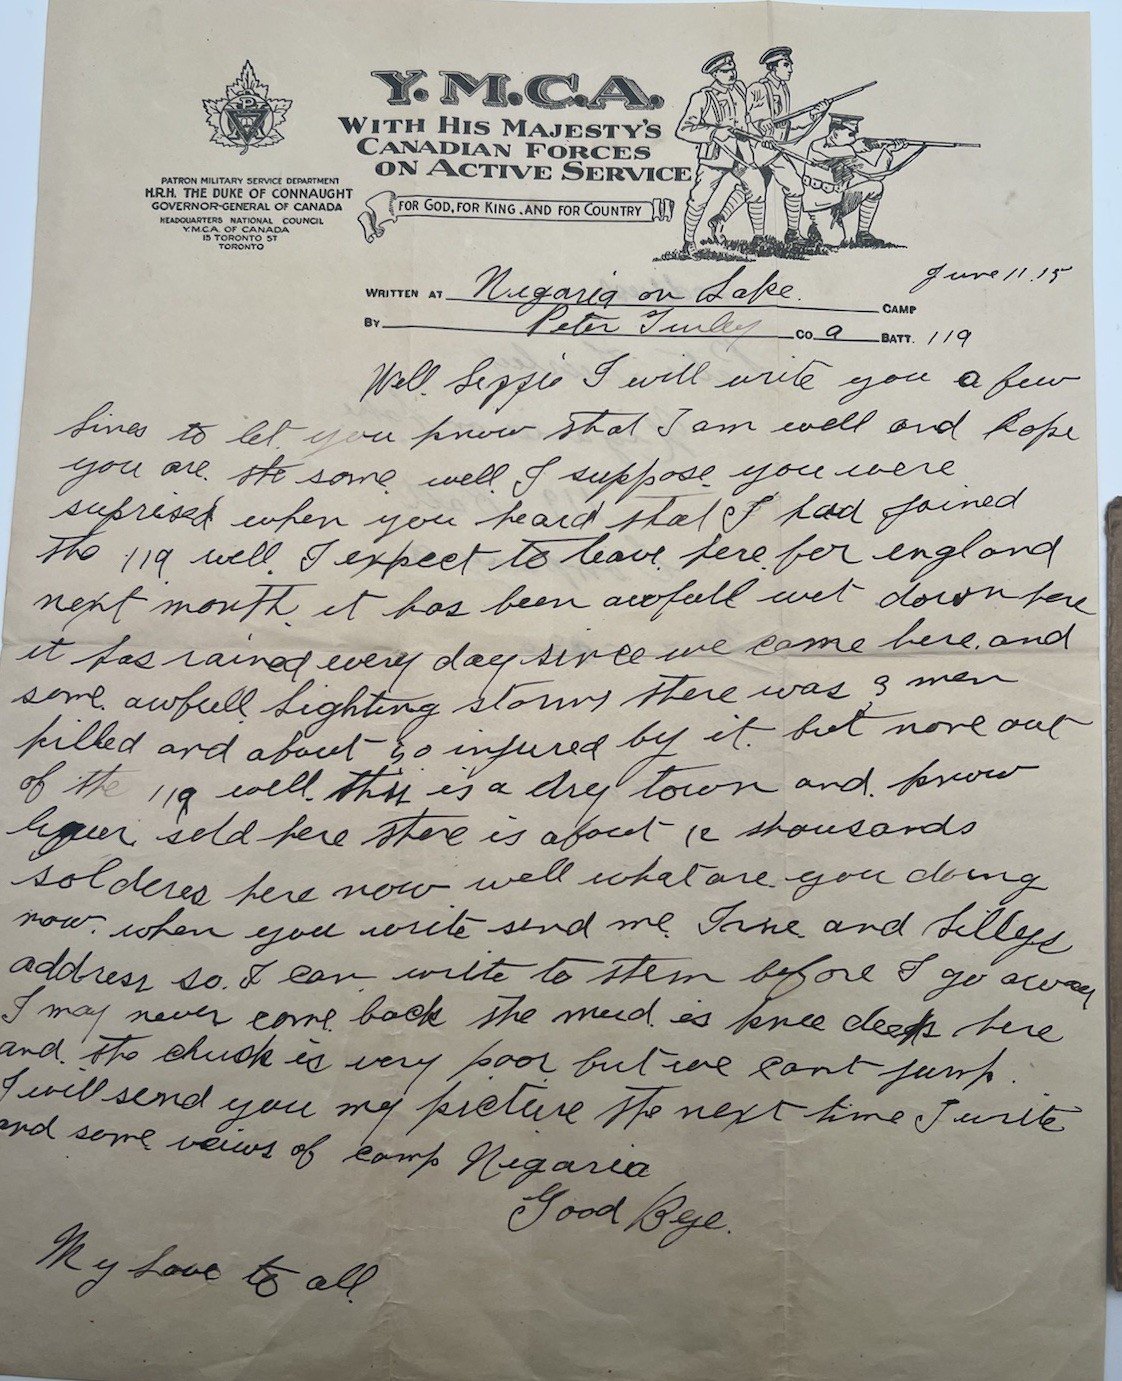 Y.M.C.A.
WITH HIS MAJESTY'S
CANADIAN FORCES
ON ACTIVE SERVICE
FOR GOD, FOR KING, AND FOR COUNTRY
PATRON MILITARY SERVICE DEPARTMENT
H.R.H. THE DUKE OF CONNAUGHT
GOVERNOR-GENERAL OF CANADA
HEADQUARTERS NATIONAL COUNCIL
Y.M.C.A. OF CANADA
15 TORONTO ST
TORONTO
June 11.15
WRITTEN AT Nigaria on Lake. CAMP
BY Peter Turley CO a BATT. 119
Well. I will write you a few
lines to let you know that I am well and hope
you are. the same. well. I suppose you were
suprised when you heard that I had joined
the 119 well. I expect to leave here for england
next month. it has been awfull wet down here
it has rained every day since we came here. and
some. awfull. lighting storms there was 3 men
killed and about 30 injured by it. but none out
of the 119 well. this is a dry town and. know
liquer. sold here there is about 12 thousands
solderes here now well what are. you doing
now. when you write send me. and Lillys
address so. I can write to them before I go away
I may never come. back the mud. is knee deep here
and. the chuck is very poor but we cant jump.
I will send you my picture the next time I write
and some. veiws of camp Nigaria
Good Bye.
My Love to all.